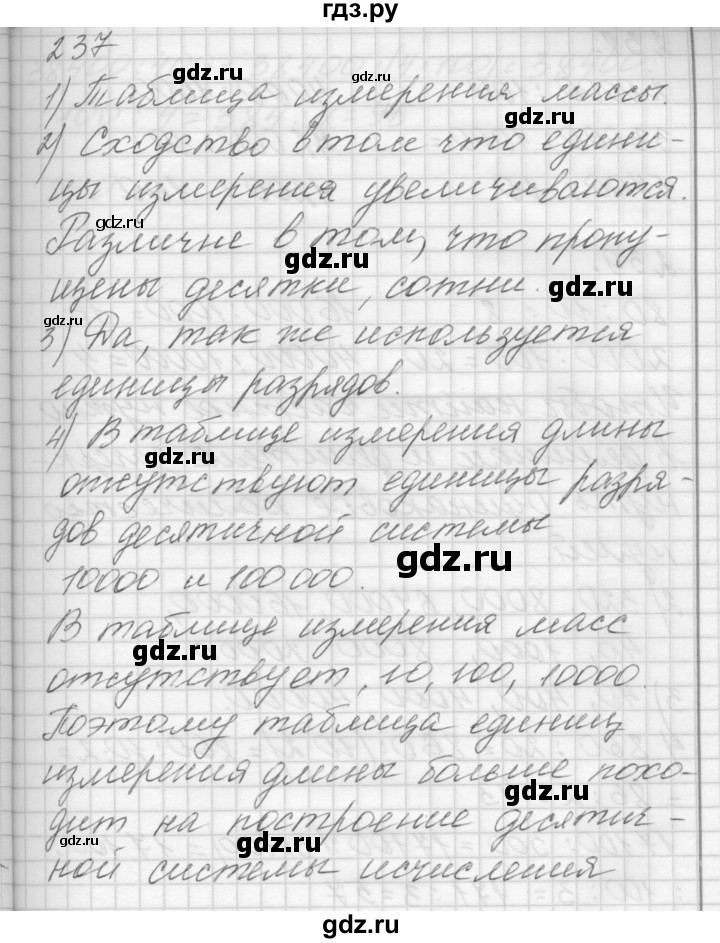 гдз.ру
237
1) Таблица измерения массы.
gdz.ru
2) Сходство в том что едини-
цы измерения увеличиваются.
gdz.ru
Различие в том, что пропу-
gdz.ru
щены десятки, сотни.
gdz.ru
3) Да, так же используется
gdz.ru
единицы разрядов.
4) В таблице измерения длины
gdz.ru
отсутствуют единицы разря-
дов десятичной системы
gdz.ru
10000 и 100 000.
В таблице измерения масс
gdz.ru
отсутствует, 10, 100, 10000.
Поэтому таблица единиц
измерения длины больше похо-
gdz.ru
дит на построение десятич-
gdz.ru
ной системы исчисления
gdz.ru